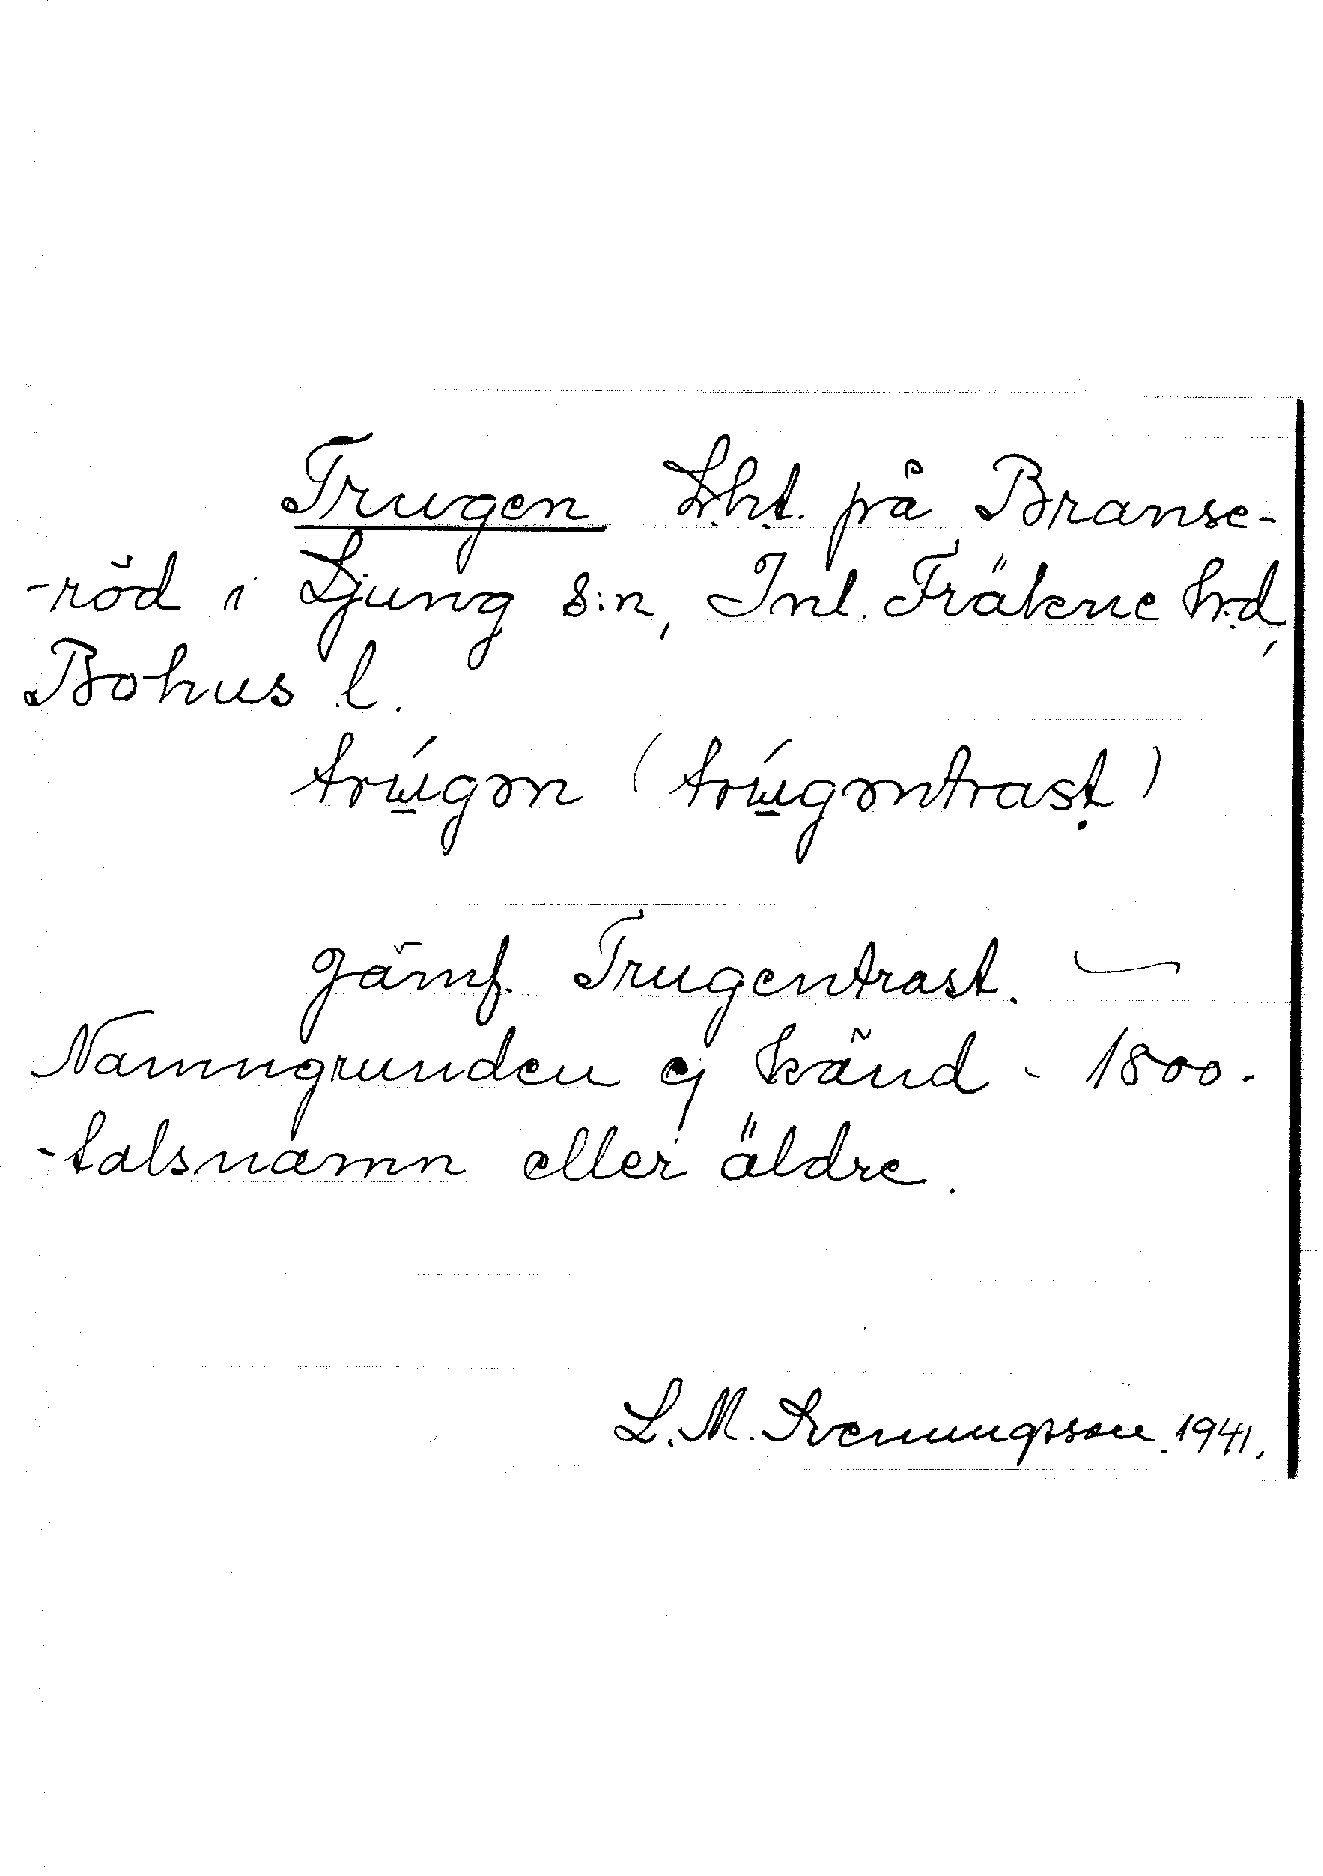 Trugen Lht. på Branse-
-röd i Ljung s:n, Inl. Fräkne hrd,
Bohus l.
trɯ́gən (trɯ́gəntrasṭ)
Jämf. Trugentrast. —
Namngrunden ej känd - 1800-
-talsnamn eller äldre.
L. M. Svenungsson. 1941.